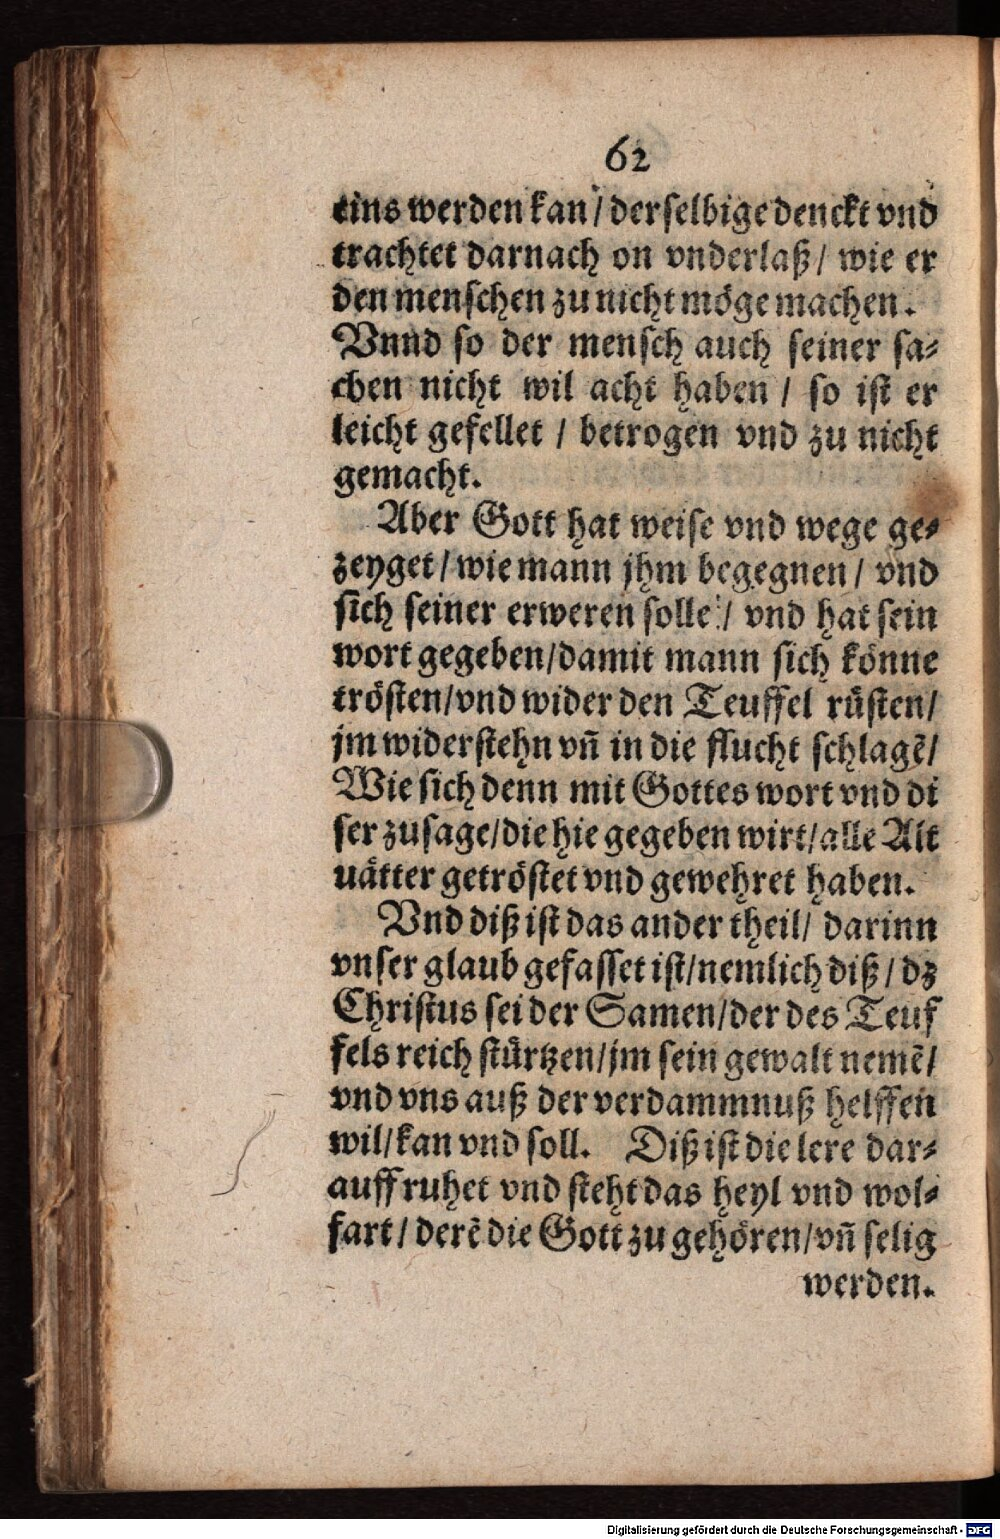 62
eins werden kan / derselbige denckt vnd
trachtet darnach on vnderlaß / wie er
den menschen zu nicht möge machen.
Vnnd so der mensch auch seiner sa-
chen nicht wil acht haben / so ist er
leicht gefellet / betrogen vnd zu nicht
gemacht.
Aber Gott hat weise vnd wege ge-
zeyget / wie mann jhm begegnen / vnd
sich seiner erweren solle / vnd hat sein
wort gegeben / damit mann sich könne
trösten / vnd wider den Teuffel rüsten /
jm widerstehn vñ in die flucht schlagẽ /
Wie sich denn mit Gottes wort vnd di
ser zusage / die hie gegeben wirt / alle Alt
uätter getröstet vnd gewehret haben.
Vnd diß ist das ander theil / darinn
vnser glaub gefasset ist / nemlich diß / dz
Christus sei der Samen / der des Teuf
fels reich stürtzen / jm sein gewalt nemẽ /
vnd vns auß der verdammnuß helffen
wil / kan vnd soll. Diß ist die lere dar-
auff ruhet vnd steht das heyl vnd wol-
fart / derẽ die Gott zu gehören / vñ selig
werden.
Digitalisierung gefördert durch die Deutsche Forschungsgemeinschaft - DFG